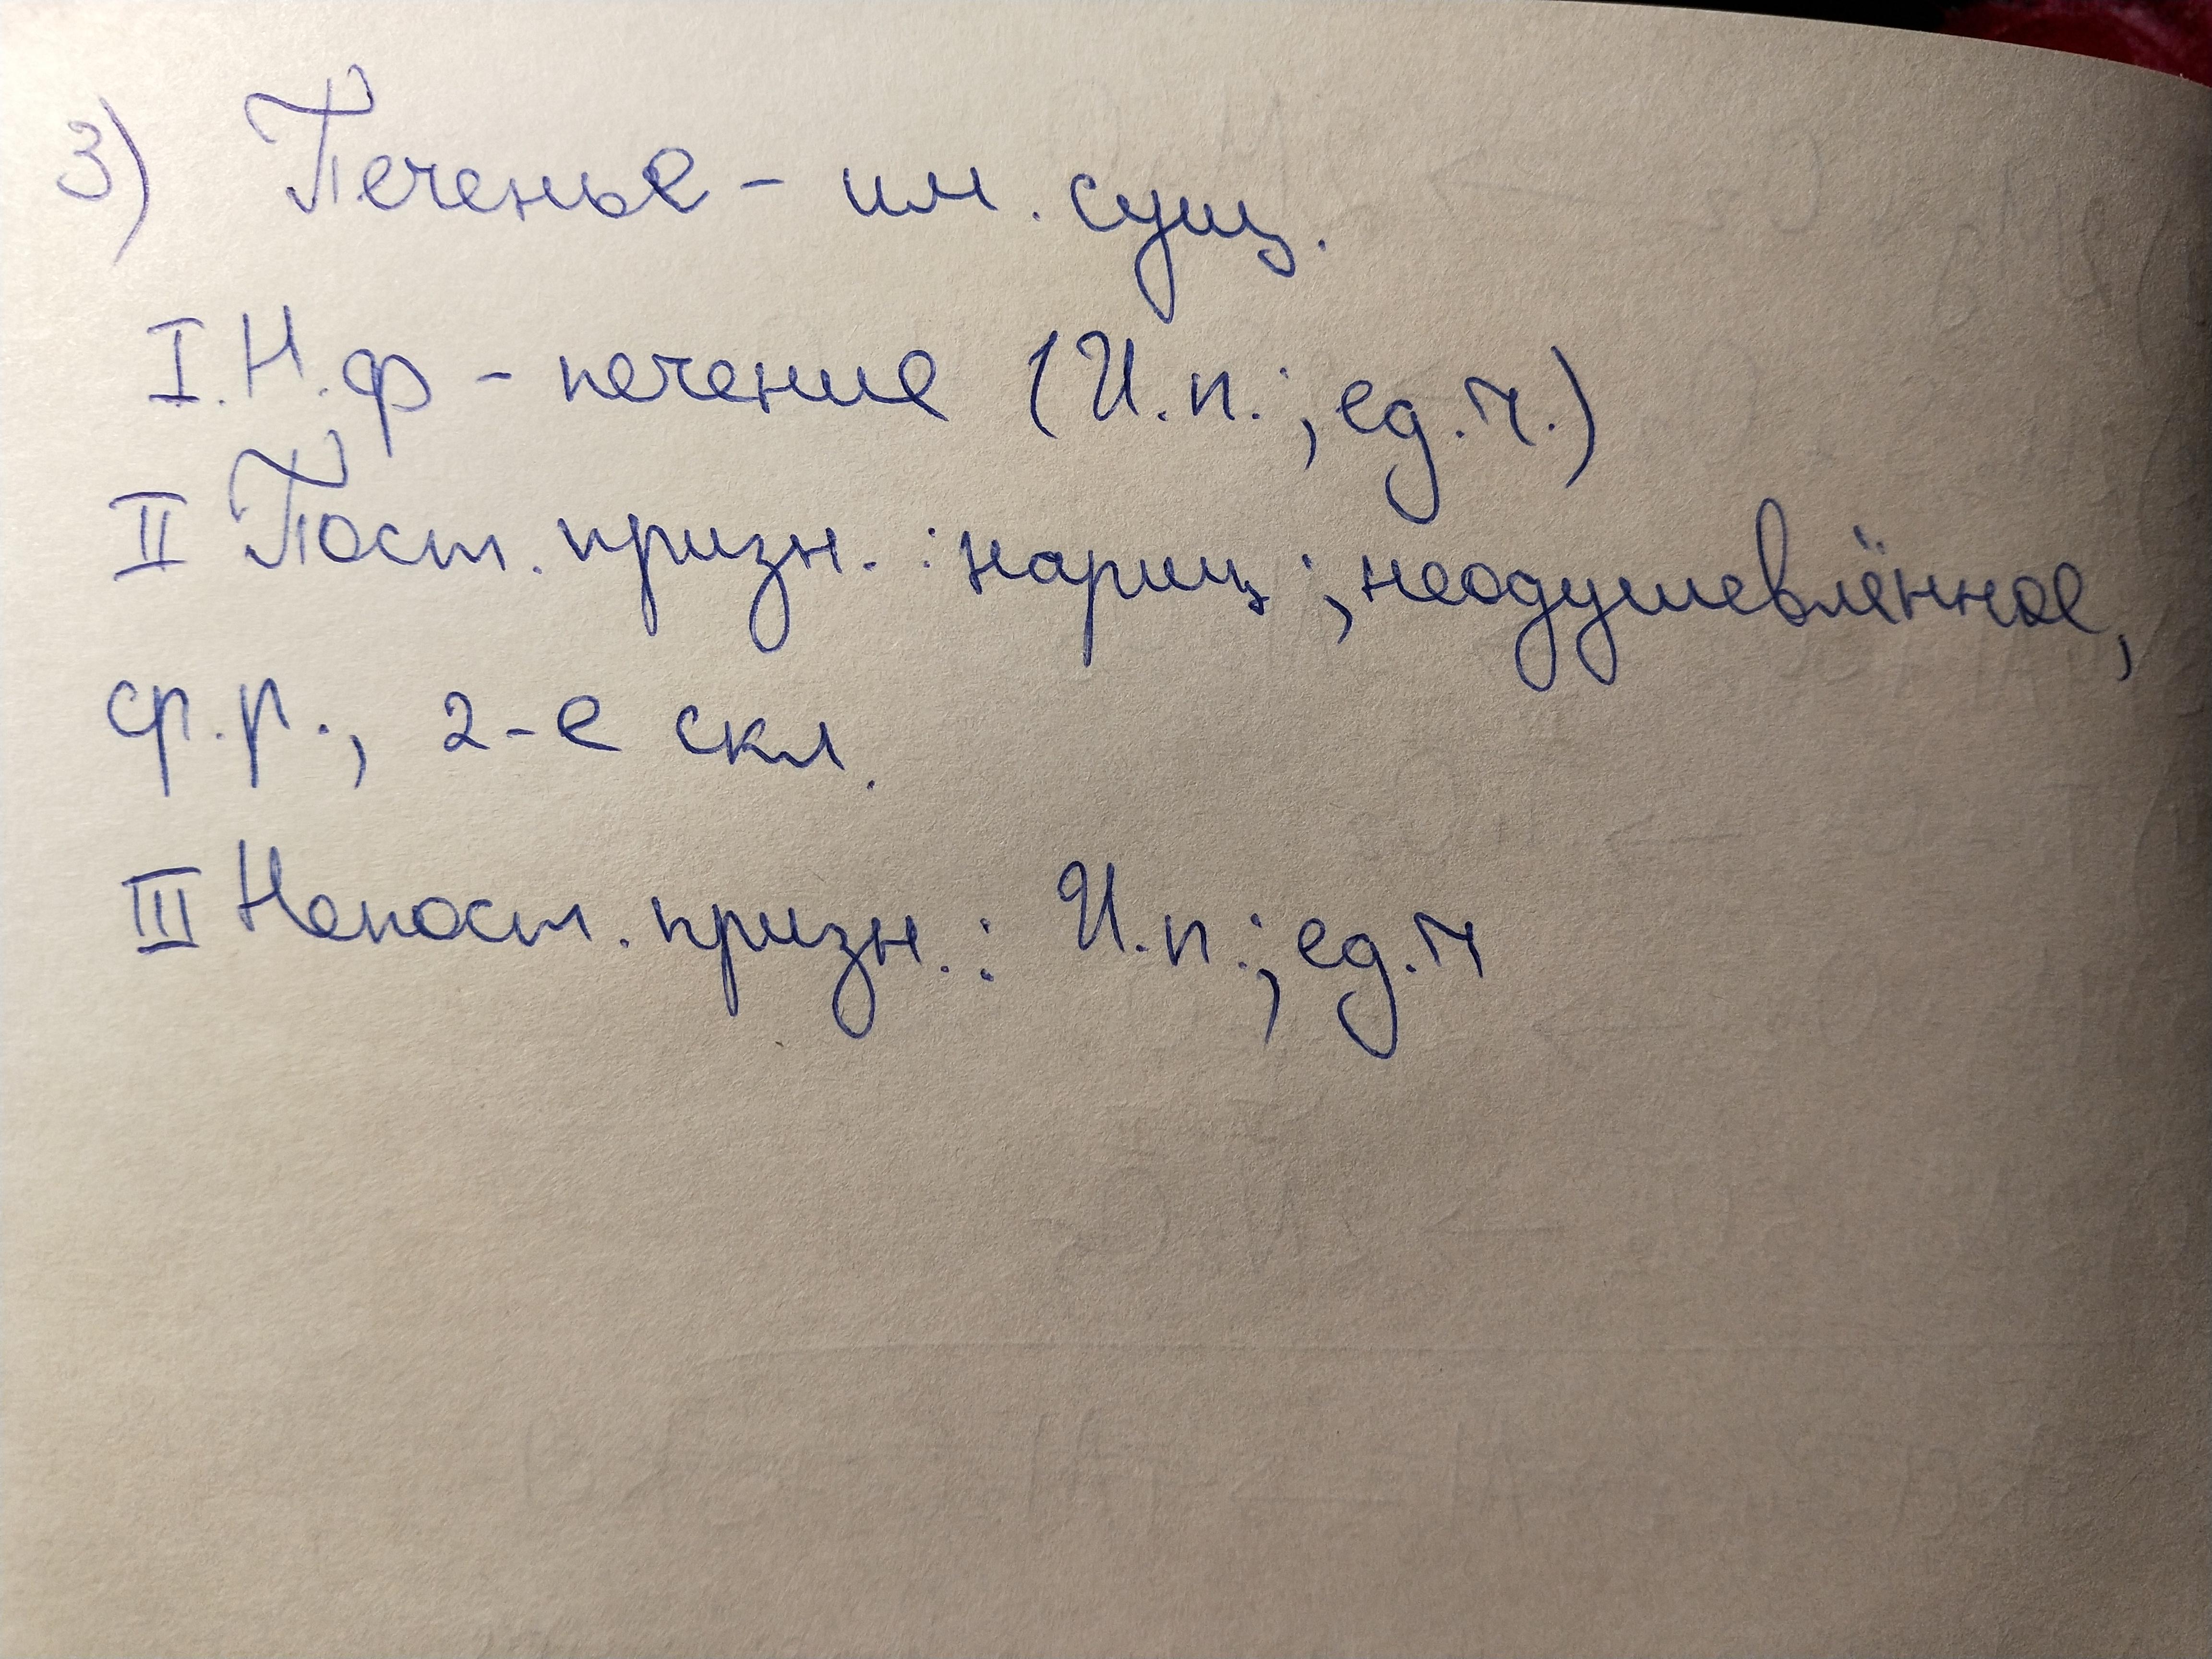 3) Печенье - им. сущ.
I. Н.ф - печение (И.п.; ед.ч.)
II Пост. призн. : нариц.; неодушевлённое,
ср.р., 2-е скл.
III Непост. призн.: И.п.; ед.ч